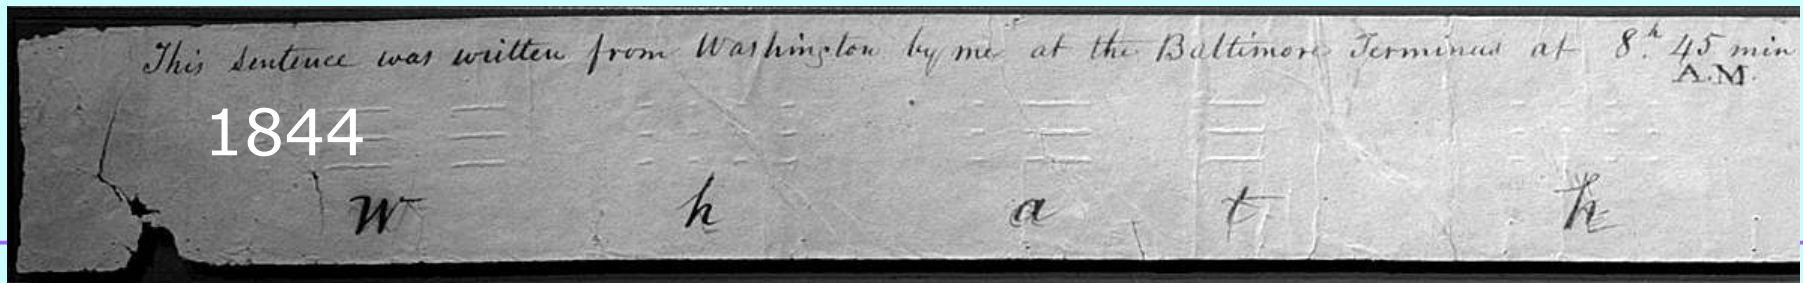 This sentence was written from Washington by me at the Baltimore Terminus at 8.h 45 min
A.M.
1844
W h a t h